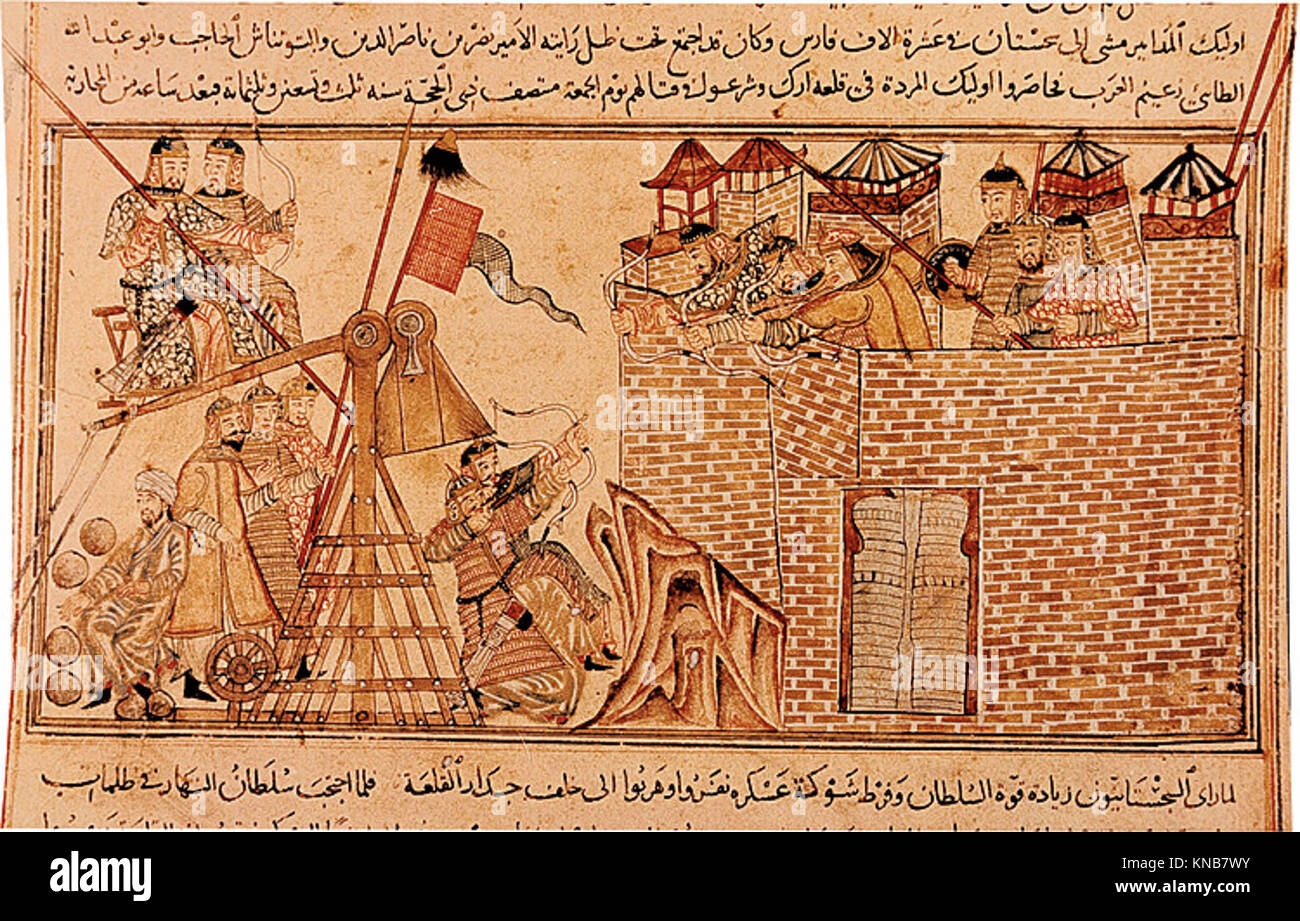 اوليك المدابير مشى الى سجستان فى عشرة الاف فارس وكان قد اجتمع تحت ظل رايته الامير نصر بن ناصر الدين والتونتاش الحاجب وابو عبد الله
الطائى زعيم العرب فحاصروا اوليك المردة فى قلعه ارك وشرعوا فى قتالهم يوم الجمعة منتصف ذى الحجة سنه ثلث وتسعين وثلثماية فبعد ساعه من المحاربه
لما راى السجستانيون زياده قوة السلطان وفرط شوكة عسكره نفروا وهربوا الى خلف جدار القلعة فلما احتجب سلطان النهار فى ظلمات
alamy
alamy stock photo
KNB7WY
www.alamy.com